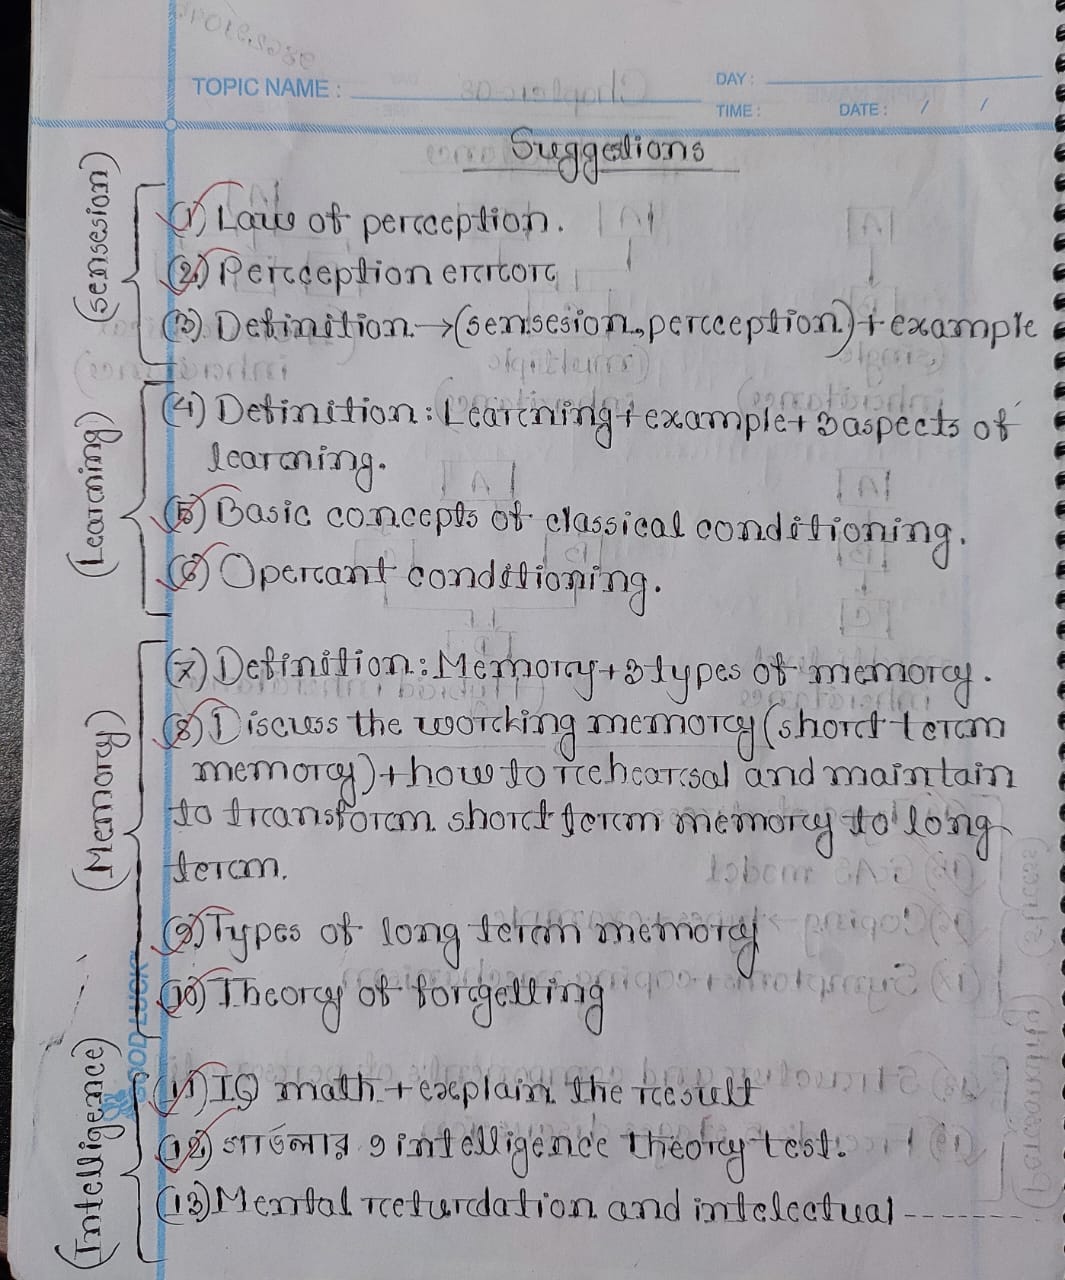 TOPIC NAME :
DAY :
TIME :
DATE : / /
Suggestions
(Sensesion)
(1) Laws of perception.
(2) Perception error
(3) Definition → (sensesion, perception) + example
(Learning)
(4) Definition: Learning + example + 3 aspects of
learning.
(5) Basic concepts of classical conditioning.
(6) Operant conditioning.
(Memory)
(7) Definition: Memory + 3 types of memory.
(8) Discuss the working memory (short term
memory) + how to rehearsal and maintain
to transform short term memory to long
term.
(9) Types of long term memory
(10) Theory of forgetting
GOOD LUCK
(Intelligence)
(11) IQ math + explain the result
(12) গার্ডনার 9 intelligence theory test.
(13) Mental returdation and intelectual -------